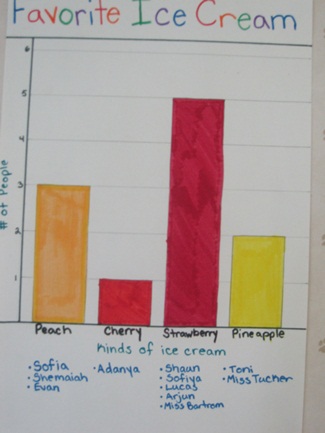 Favorite Ice Cream
6
5
4
3
2
1
# of People
Peach Cherry Strawberry Pineapple
Kinds of ice cream
• Sofia
• Shemaiah
• Evan
• Adanya
• Shaun
• Sofiya
• Lucas
• Arjun
• Miss Bartram
• Toni
• Miss Tucker